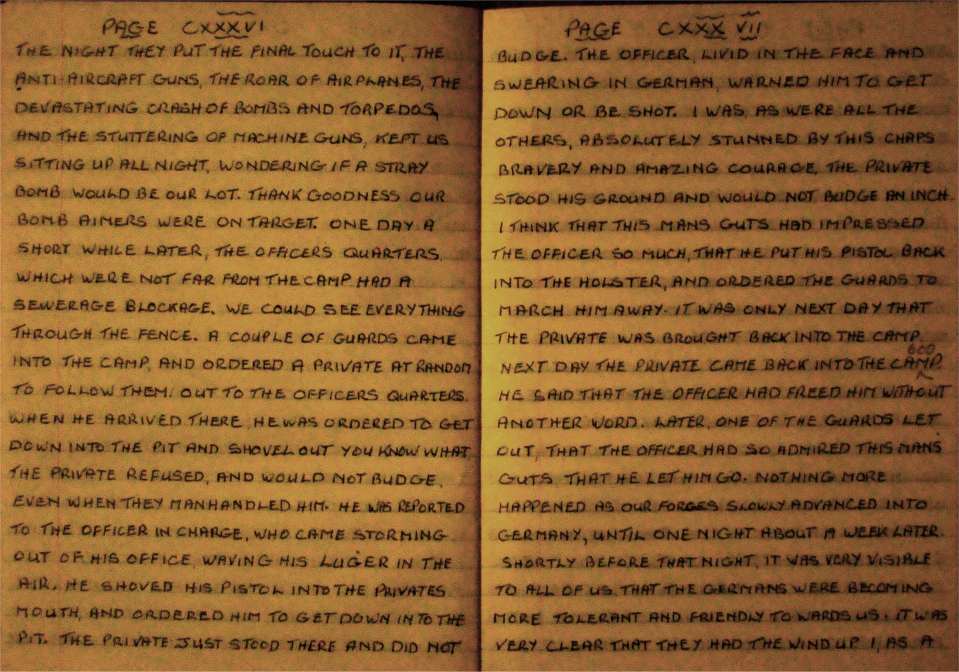 PAGE CXXXVI
THE NIGHT THEY PUT THE FINAL TOUCH TO IT, THE
ANTI-AIRCRAFT GUNS, THE ROAR OF AIRPLANES, THE
DEVASTATING CRASH OF BOMBS AND TORPEDOS,
AND THE STUTTERING OF MACHINE GUNS, KEPT US
SITTING UP ALL NIGHT, WONDERING IF A STRAY
BOMB WOULD BE OUR LOT. THANK GOODNESS OUR
BOMB AIMERS WERE ON TARGET. ONE DAY A
SHORT WHILE LATER, THE OFFICERS QUARTERS,
WHICH WERE NOT FAR FROM THE CAMP HAD A
SEWERAGE BLOCKAGE. WE COULD SEE EVERYTHING
THROUGH THE FENCE. A COUPLE OF GUARDS CAME
INTO THE CAMP, AND ORDERED A PRIVATE AT RANDOM
TO FOLLOW THEM, OUT TO THE OFFICERS QUARTERS.
WHEN HE ARRIVED THERE, HE WAS ORDERED TO GET
DOWN INTO THE PIT AND SHOVEL OUT YOU KNOW WHAT.
THE PRIVATE REFUSED, AND WOULD NOT BUDGE,
EVEN WHEN THEY MANHANDLED HIM. HE WAS REPORTED
TO THE OFFICER IN CHARGE, WHO CAME STORMING
OUT OF HIS OFFICE, WAVING HIS LUGER IN THE
AIR. HE SHOVED HIS PISTOL INTO THE PRIVATES
MOUTH, AND ORDERED HIM TO GET DOWN IN TO THE
PIT. THE PRIVATE JUST STOOD THERE AND DID NOT
PAGE CXXXVII
BUDGE. THE OFFICER, LIVID IN THE FACE AND
SWEARING IN GERMAN, WARNED HIM TO GET
DOWN OR BE SHOT. I WAS, AS WERE ALL THE
OTHERS, ABSOLUTELY STUNNED BY THIS CHAPS
BRAVERY AND AMAZING COURAGE. THE PRIVATE
STOOD HIS GROUND AND WOULD NOT BUDGE AN INCH.
I THINK THAT THIS MANS GUTS HAD IMPRESSED
THE OFFICER SO MUCH, THAT HE PUT HIS PISTOL BACK
INTO THE HOLSTER, AND ORDERED THE GUARDS TO
MARCH HIM AWAY. IT WAS ONLY NEXT DAY THAT
THE PRIVATE WAS BROUGHT BACK INTO THE CAMP.
NEXT DAY THE PRIVATE CAME BACK INTO THE CAMP.
HE SAID THAT THE OFFICER HAD FREED HIM WITHOUT
ANOTHER WORD. LATER, ONE OF THE GUARDS LET
OUT, THAT THE OFFICER HAD SO ADMIRED THIS MANS
GUTS THAT HE LET HIM GO. NOTHING MORE
HAPPENED AS OUR FORCES SLOWLY ADVANCED INTO
GERMANY, UNTIL ONE NIGHT ABOUT A WEEK LATER.
SHORTLY BEFORE THAT NIGHT, IT WAS VERY VISIBLE
TO ALL OF US, THAT THE GERMANS WERE BECOMING
MORE TOLERANT AND FRIENDLY TO WARDS US. IT WAS
VERY CLEAR THAT THEY HAD THE WIND UP I, AS A